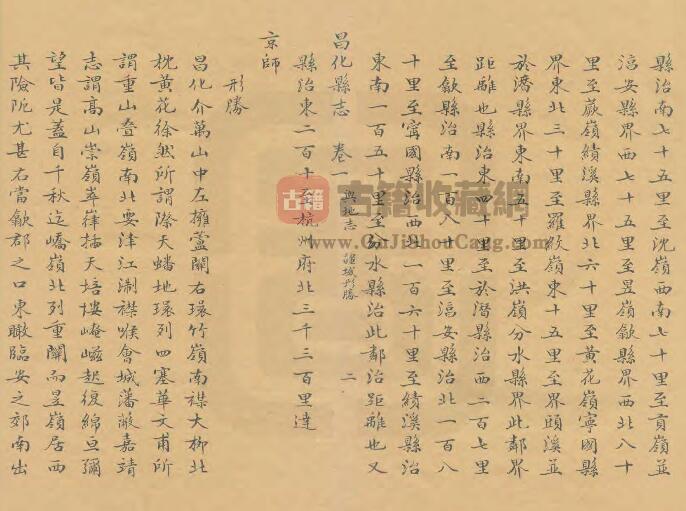 縣治南七十五里至沈嶺西南七十里至貢嶺並
淳安縣界西七十五里至昱嶺歙縣界西北八十
里至蕨嶺績溪縣界北六十里至黃花嶺寧國縣
界東北三十里至羅紋嶺東十五里至界頭溪並
於潛縣界東南五十里至洪嶺分水縣界此鄰界
距離也縣治東四十里至於潛縣治西二百七里
至歙縣治南一百八十里至淳安縣治北一百八
十里至寧國縣治西北一百六十里至績溪縣治
東南一百五十里至分水縣治此鄰治距離也又
昌化縣志 卷一 輿地志 疆域形勝 二
縣治東二百十至杭州府北三千三百里達
京師
形勝
昌化介萬山中左擁蘆關右環竹嶺南襟大柳北
枕黃花徐然所謂際天蟠地環列四塞華文甫所
謂重山疊嶺南北要津江淛襟喉會城藩蔽嘉靖
志謂高山崇嶺崒嵂插天培塿嶙嵫起復綿亘彌
望皆是蓋自千秋迄嶠嶺北列重關而昱嶺居西
其險阨尤甚右當歙郡之口東瞰臨安之郊南出
古籍
古籍收藏網
www.GuJiShouCang.com